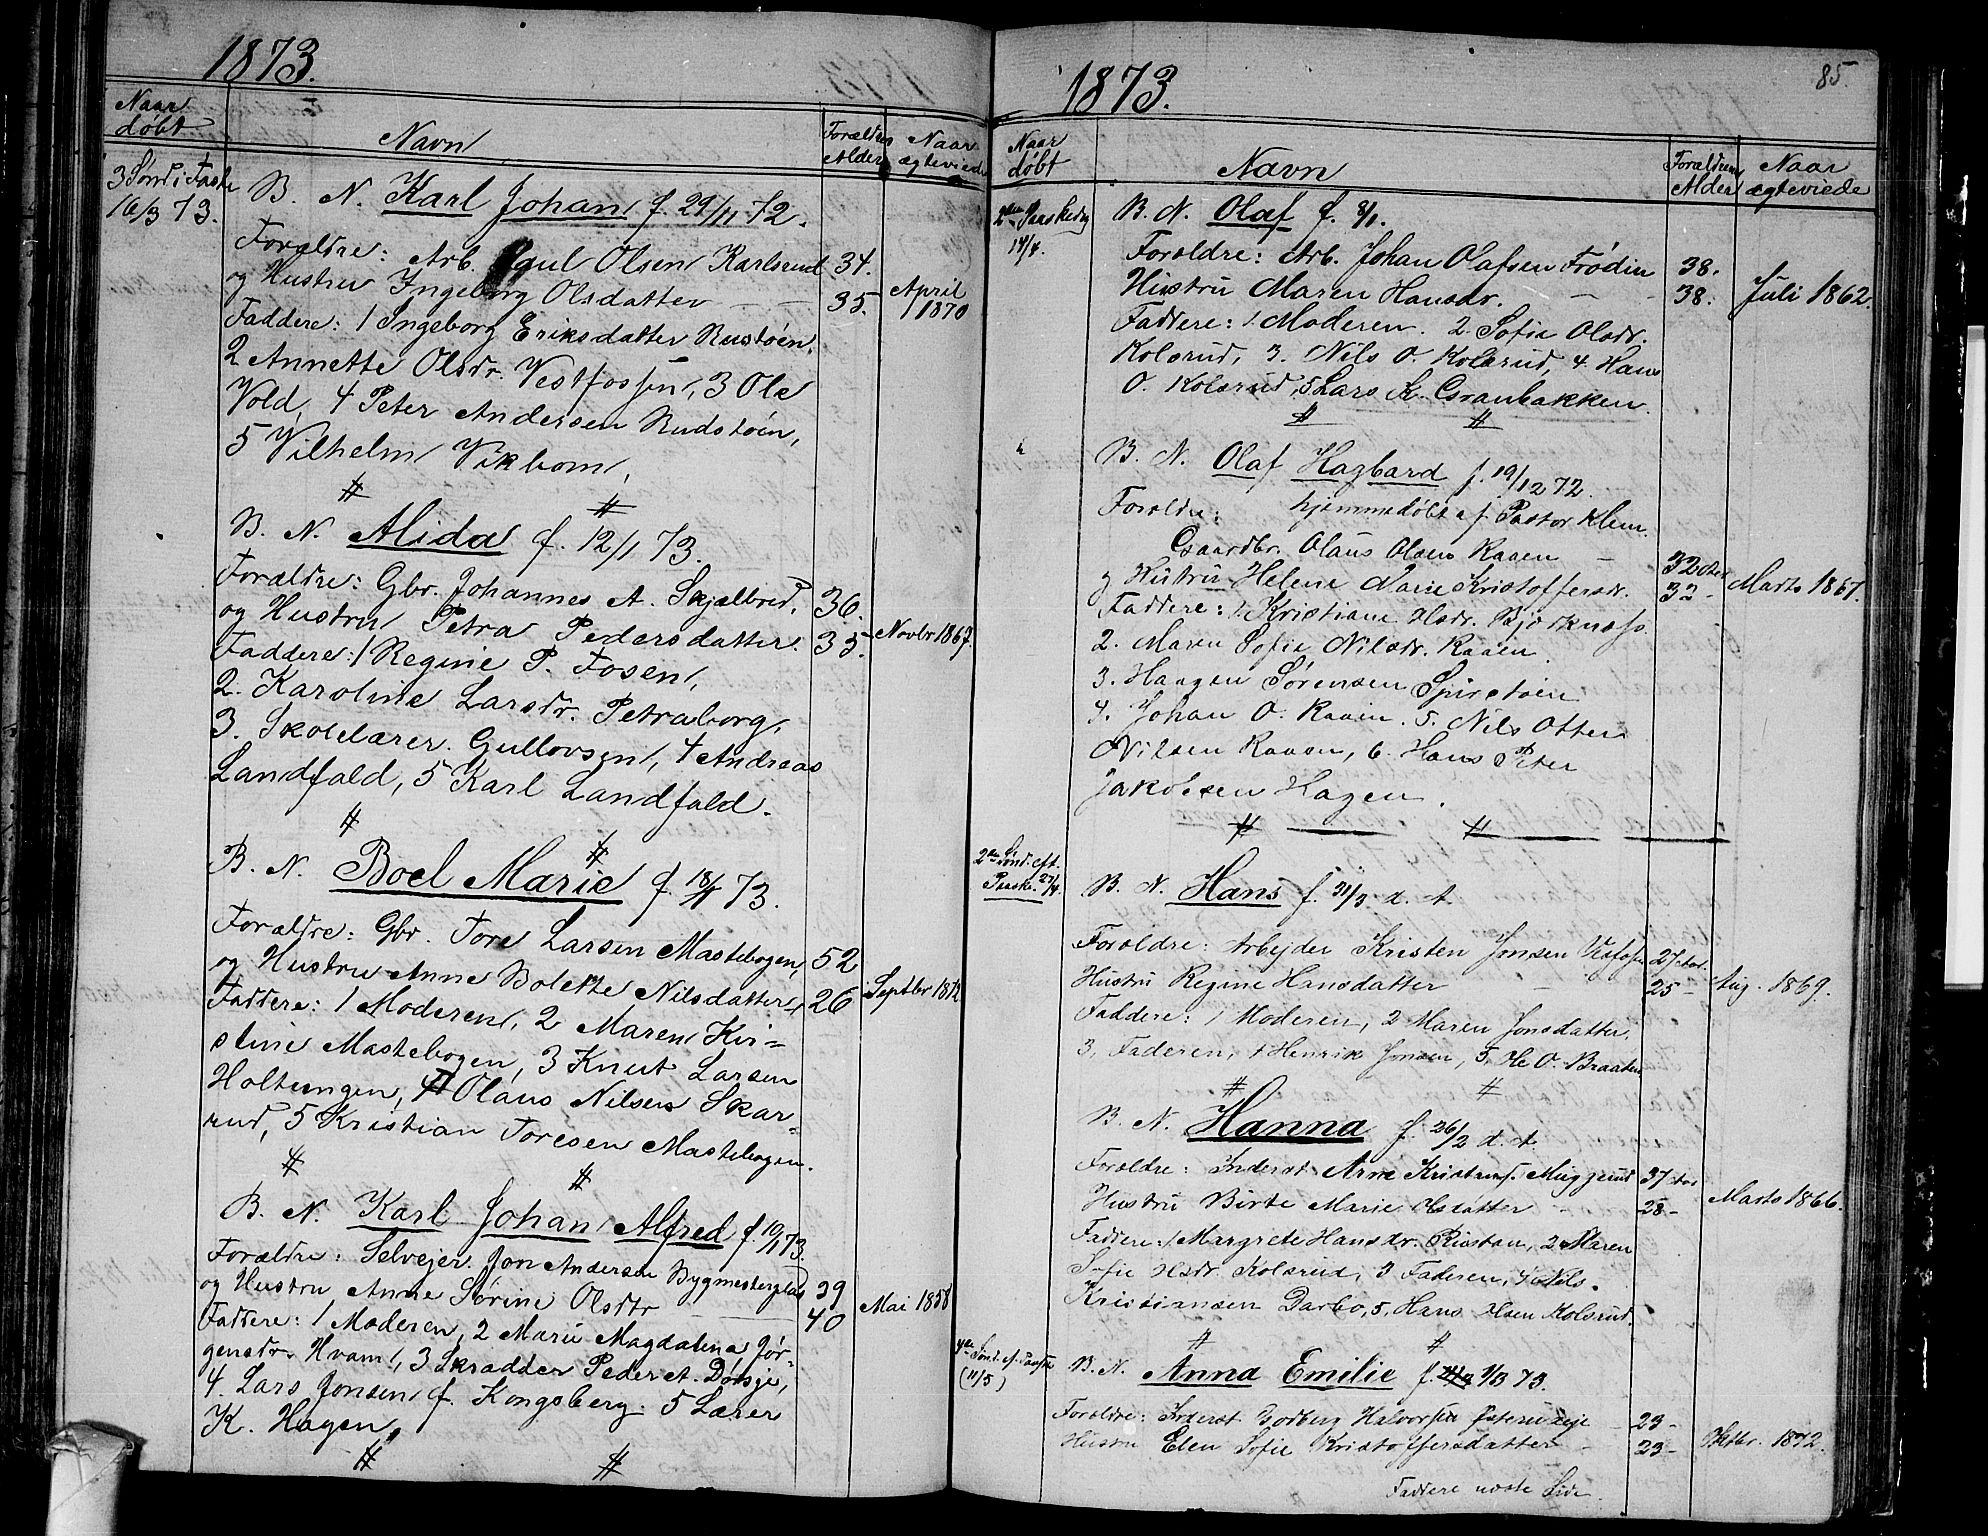 1873.
Naar døbt
Navn
Forældres Alder
Naar ægteviede
3 Sønd i Faste
16/3 73.
B. N. Karl Johan f. 29/11 72.
Forældre: Arb. Paul Olsen Karlsrud 34.
og Hustru Ingeborg Olsdatter — — 35. April 1870
Faddere: 1 Ingeborg Eriksdatter Rustøen,
2 Annette Olsdr. Vestfossen, 3 Ole
Vold, 4 Peter Andersen Rudstøen,
5 Vilhelm Vikbom,
B. N. Alida f. 12/1 73.
Forældre: Gbr. Johannes A. Skjælbred, 36.
og Hustru Petra Pedersdatter. 35. Novbr 1867.
Faddere: 1 Regine P. Fosen,
2. Karoline Larsdr. Petraborg,
3. Skolelærer. Gullovsen, 4 Andreas
Landfald, 5 Karl Landfald.
B. N. Boel Marie f. 18/1 73.
Forældre: Gbr. Tore Larsen Mastebogen, 52
og Hustru Anne Bolette Nilsdatter 26 Septbr 1872
Faddere: 1 Moderen, 2 Maren Kri-
stine Mastebogen, 3 Knut Larsen
Holtungen, 4 Olaus Nilsen Skar-
rud, 5 Kristian Toresen Mastebogen.
B. N. Karl Johan Alfred f. 10/1 73.
Forældre: Selvejer. Jon Andersen Bygmesterplas 39
og Hustru Anne Sørine Olsdtr — 40 Mai 1858
Faddere: 1 Moderen, 2 Marie Magdalena Jør-
gensdr. Hvam, 3 Skrædder Peder A. Dørje,
4. Lars Jonsen f. Kongsberg. 5 Lærer
K. Hagen.
1873.
85.
Naar døbt
Navn
Forældrenes Alder
Naar ægteviede
2den Paaskedag
14/4.
B. N. Olaf f. 3/1.
Foreldre: Arb. Johan Olafsen Frødin 38.
Hustru Maren Hansdr. — — 38. Juli 1862.
Faddere: 1. Moderen. 2. Sofie Olsdr.
Kolsrud, 3. Nils O. Kolsrud, 4. Hans
O. Kolsrud, 5 Lars K. Granbakken.
B. N. Olaf Hagbard f. 19/12 72.
Foreldre: hjemmedøbt af Pastor Klem.
Gaardbr. Olaus Olsen Raaen — 32
og Hustru Helene Marie Kristoffersdr. 32 - Marts 1867.
Faddere: 1. Kristiane Hsdr. Bjørknæss.
2. Maren Sofie Nilsdr. Raaen.
3. Haagen Sørensen Spirstøen
4. Johan O. Raaen. 5. Nils Otter
Nilsen Raaen, 6. Hans Peter
Jakobsen Hagen.
2den Sønd. eft.
Paaske. 27/4.
B. N. Hans f. 31/3 d. A.
Foreldre: Arbejder Kristen Jonsen Vestfossen 27
Hustru Regine Hansdatter — 25 - Aug. 1869.
Faddere: 1 Moderen, 2 Maren Jonsdatter,
3, Faderen, 4 Henrik Jonsen, 5, He O. Braaten
B. N. Hanna f. 26/2 d. A.
Foreldre: Inderst Arne Kristians. Muggerud 37
Hustru Birte Marie Olsdatter — 28 - Marts 1866.
Faddere: 1 Margrete Hansdr. Ristan, 2 Maren
Sofie Hsdr. Kolsrud, 3 Faderen, 4 Nils.
Kristiansen Darbo, 5, Hans Olsen Kolsrud.
4de Sønd. ef. Paaske
(11/5)
B. N. Anna Emilie f. 1/3 73.
Foreldre: Inderst. Godberg Halvorsen 23 -
Hustru Elen Sofie Kristoffersdatter — 23 - Oktbr. 1872.
Faddere næste Side.